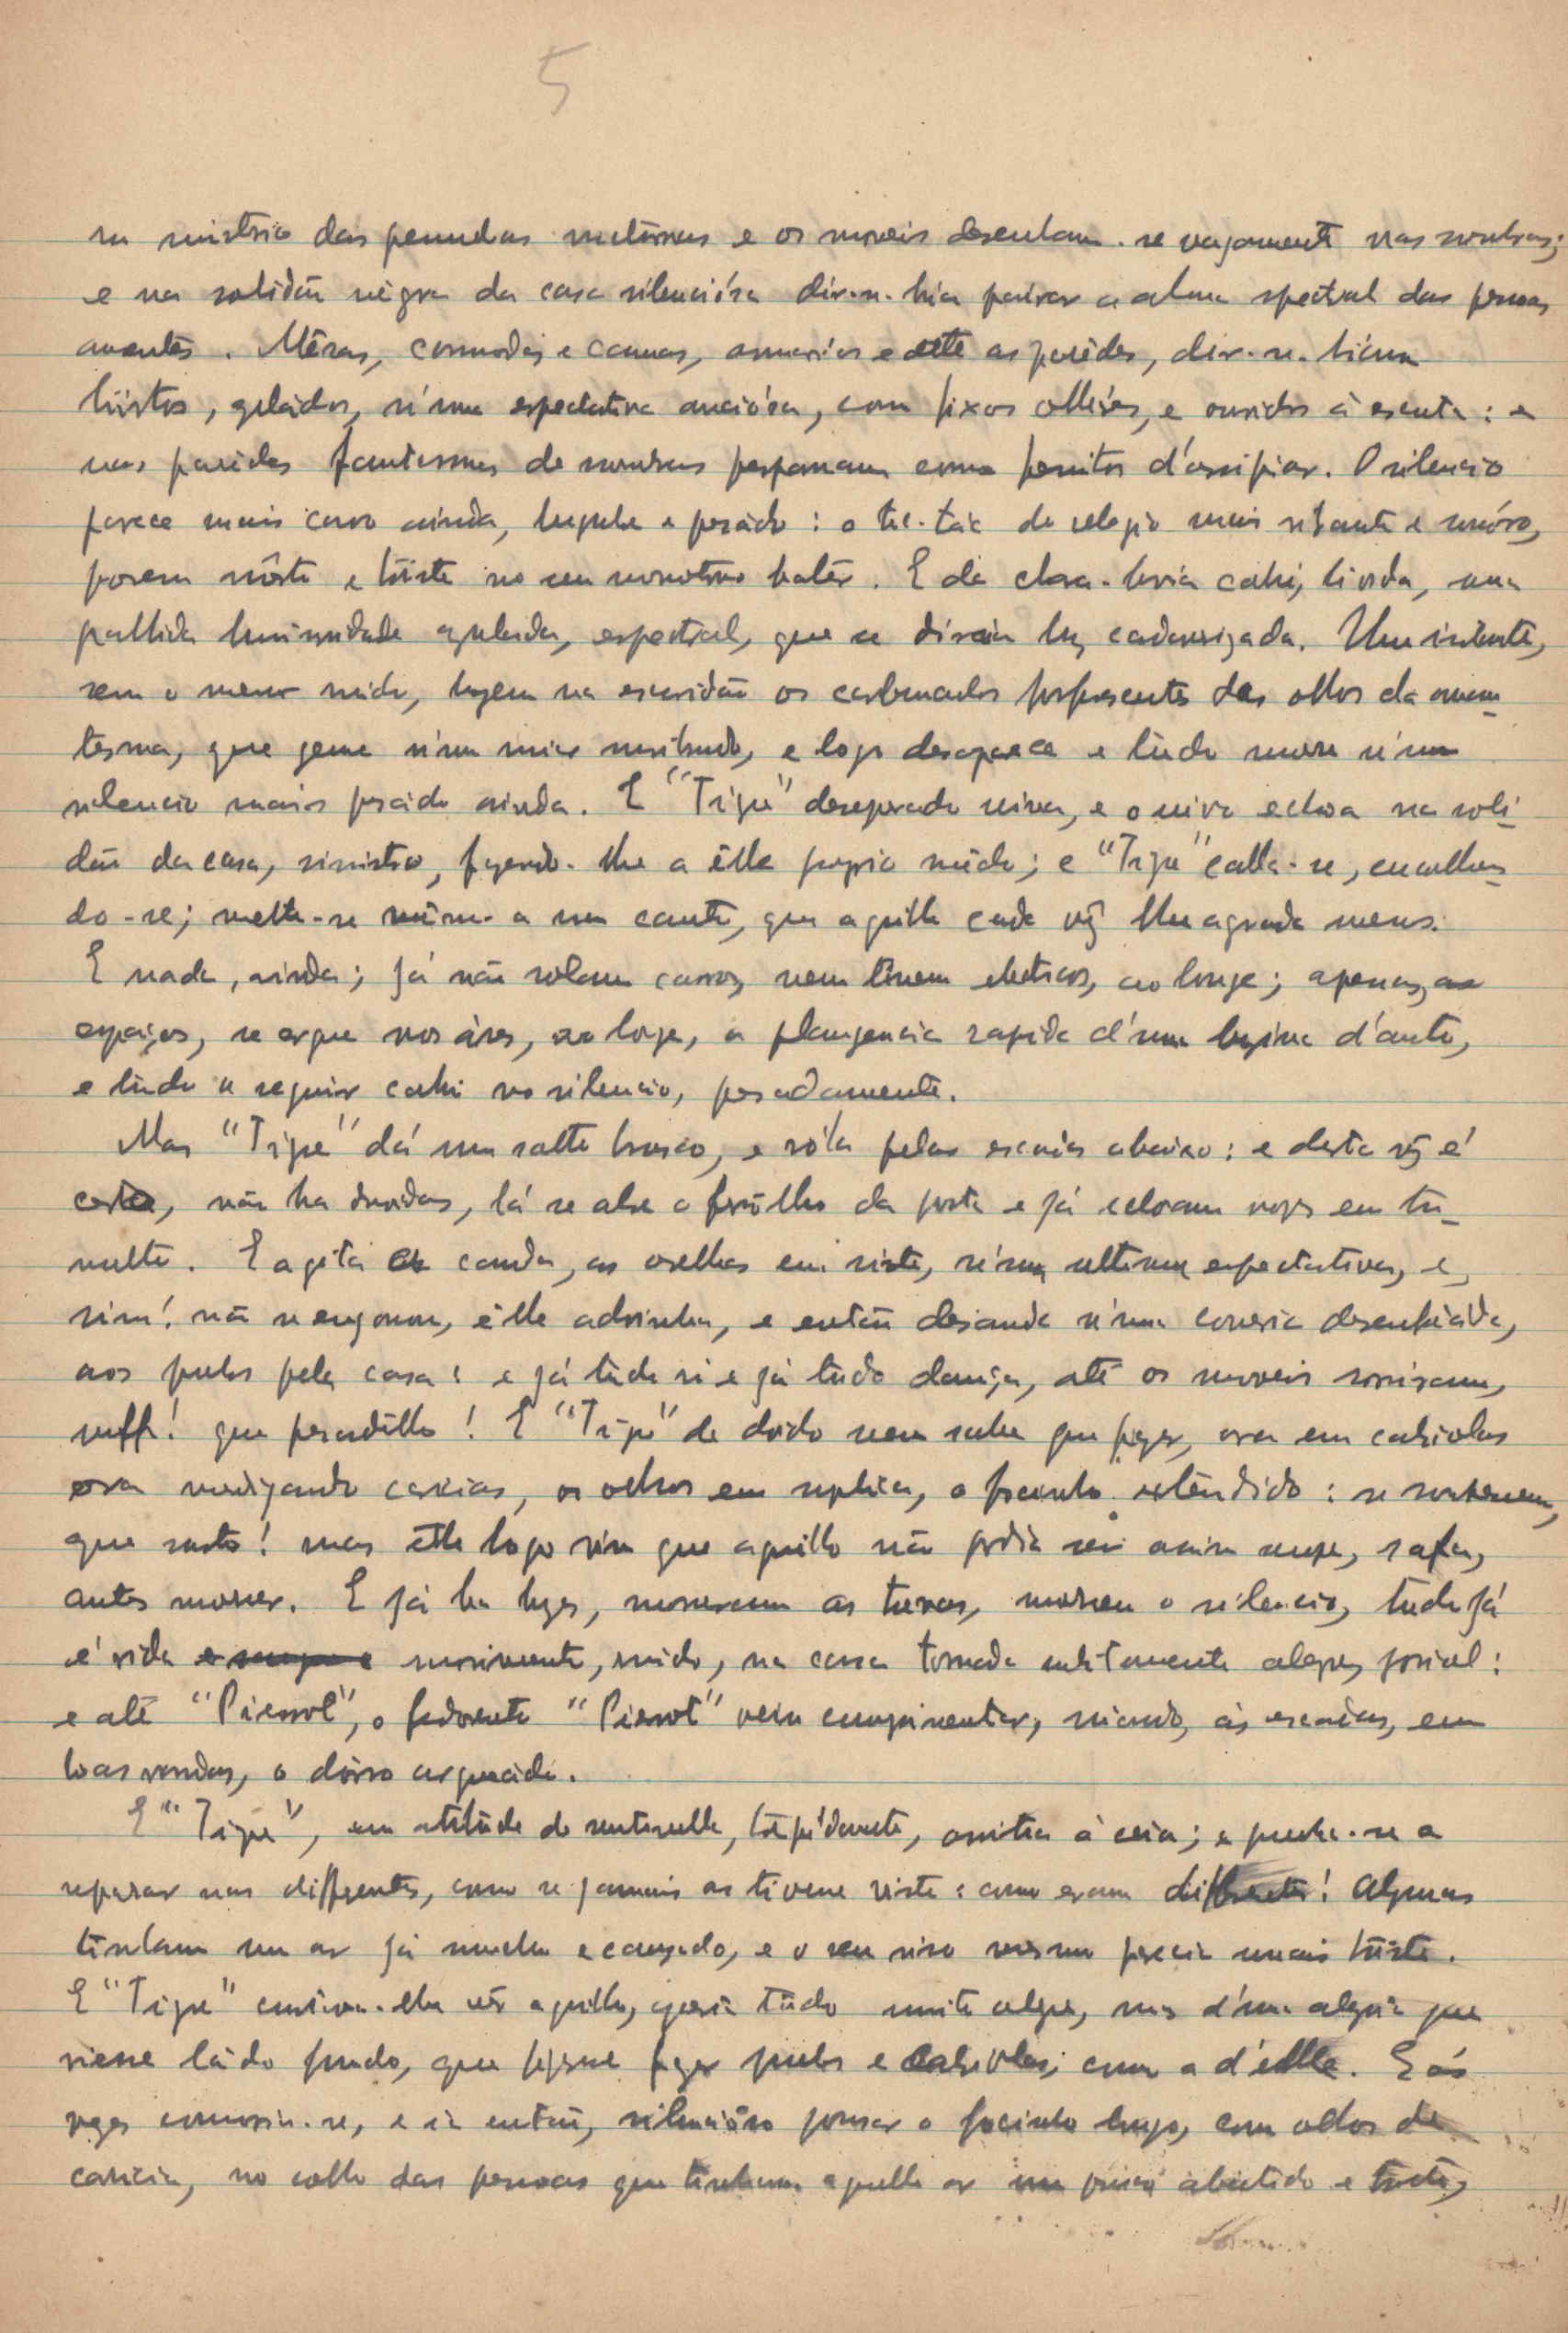 5
sinistrio das penumbras nocturnas e os moveis desenham-se vagamente nas sombras;
e na solidão negra da casa silenciósa dir-se-hia pairar a alma spectral das pessoas
auentes. Mêzas, commodas e camas, armarios e até as parêdes, dir-se-hiam
tristes, gelados, n'uma espectativa anciósa, com fixos olháres, e ouvidos á escuta: e
nas parêdes fantasmas de sombras perpassam como d'arripiar. O silencio
parece mais cavo ainda, lugubre e pesádo: o tic-tác do relogio mais vibrante e sonóro,
porem môrto e triste no seu monotono batêr. E da clara-boia cahi, livida, uma
pallida luminusidade azulada, espectral, que se diria luz cadaverizada. Um instante,
sem o menor ruido, luzem na escuridão os carbunculos fosfrescentes dos olhos da
que geme n'um miar moribundo, e logo desaparece e tùdo morre n'um
silencio mais pesádo ainda. E "Tigre" desesperado uiva, e o uivo echoa na soli-
dão da casa, sinistro, fazendo-lhe a êlle proprio mêdo; e "Tigre" calla-se, encolhen-
do-se; mette-se a um canto, que aquillo cada vêz lhe agrada menos.
E nada, ainda; já não rolam carros, nem tinem electricos, ao longe; apenas, a
espaços, se ergue nos áres, ao longe, a plangencia rapida d'uma buzina d'auto,
e tùdo a seguir cahi no silencio, pesadamente.
Mas "Tigre" dá um salto brusco, e róla pelas escádas abaixo: e desta vêz é
certo, não ha duvidas, lá se abre o ferrôlho da porta e já echoam vozes em tu-
multo. E agita a cauda, as orelhas em riste, n'uma ultima espectativa, e,
sim! não se enganou, êlle adivinha, e então desanda n'uma correria desenfreáda,
aos pulos pela casa: e já tudo ri e já tùdo dança, até os moveis sorriram,
uff! que pesadêllo! E "Tigre" de doido nem sabe que fazer, ora em cabriolas
ora mendigando caricias, os olhos em suplica, o focinho estêndido: se soubessem,
que susto! mas êlle logo viu que aquillo não podia ser assim sempre, safa,
antes morrer. E já ha luzes, morreram as trevas, morreu o silencio, tudo já
é vida e movimento, ruido, na casa tornada subitamente alegre, jovial:
e até "Pierrot", o fedorento "Pierrot" vem cumprimentar, miando, ás escadas, em
boas vindas, o dorso arqueádo.
E "Tigre", em atitùde de sentinella, trepidante, assitia á ceia; e punha-se a
reparar nas differentes, como se jamais as tivesse visto: como eram differentes! Algumas
tinham um ar já murcho e cançado, e o seu riso mesmo parecia mais triste.
E "Tigre" vêr aquillo, queria tùdo muito alegre, mas d'uma alegria que
viesse lá do fundo, que fizesse fazer pulos e cabriolas, como a d'êlle. E ás
vezes comovia-se, e ia então, silencióso pousar o focinho longo, com olhos de
caricia, no collo das pessoas que tinham aquelle ar abatido e triste,